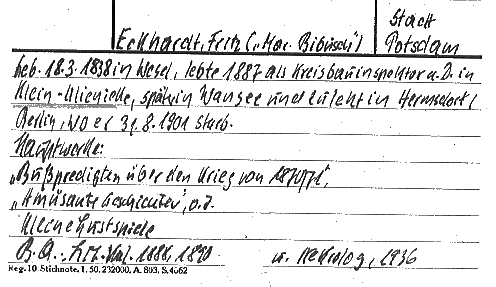 Stadt
Eckhardt, Fritz („Max Bibusch") Potsdam
Geb. 18.3.1838 in Wesel, lebte 1887 als Kreisbauinspektor a.D. in
Klein-Glienicke, später in Wansee und zuletzt in Hermsdorf/
Berlin, wo er 31.8.1901 starb.
Hauptwerke:
„Bußpredigten über den Krieg von 1870/71",
„Amüsante Geschichten", o.J.
Kleine Lustspiele
B.A.: Lit. Kal. 1888, 1890 u. Nekrolog, 1936
Reg. 10 Stichnote, 1. 50, 232000, A. 803, S. 4662